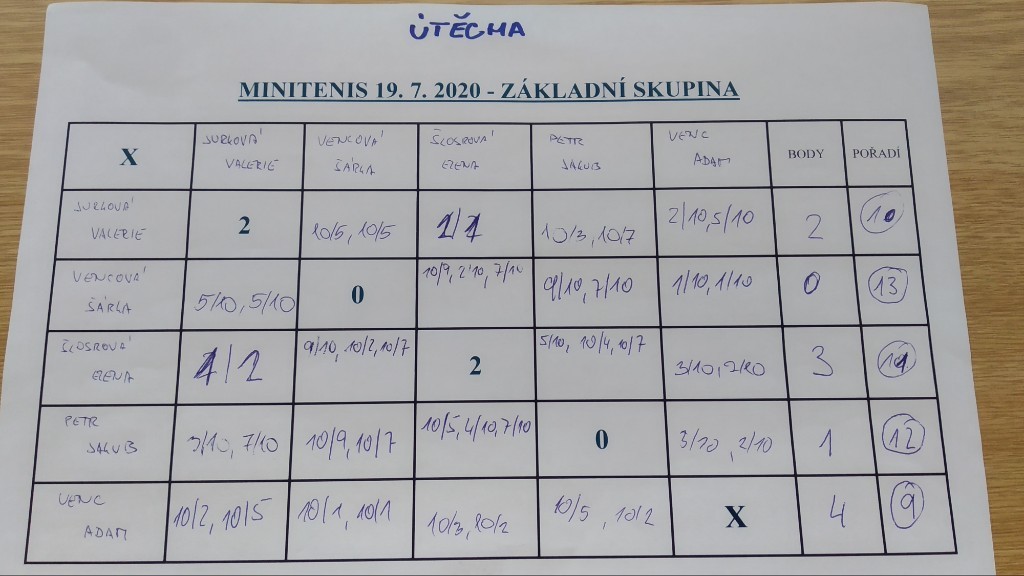 ÚTĚCHA
MINITENIS 19. 7. 2020 - ZÁKLADNÍ SKUPINA
X JURLOVÁ VALERIE VENCOVÁ ŠÁRLA ŠLOSROVÁ ELENA PETR JAKUB VENC ADAM BODY POŘADÍ
JURLOVÁ VALERIE 2 10/5, 10/5 10/3, 10/7 2/10, 5/10 2 10
VENCOVÁ ŠÁRLA 5/10, 5/10 0 10/9, 2/10, 7/10 9/10, 7/10 1/10, 1/10 0 13
ŠLOSROVÁ ELENA 1/2 9/10, 10/2, 10/7 2 5/10, 10/4, 10/7 3/10, 2/10 3 11
PETR JAKUB 3/10, 7/10 10/9, 10/7 10/5, 4/10, 7/10 0 3/10, 2/10 1 12
VENC ADAM 10/2, 10/5 10/1, 10/1 10/3, 10/2 10/5, 10/2 X 4 9